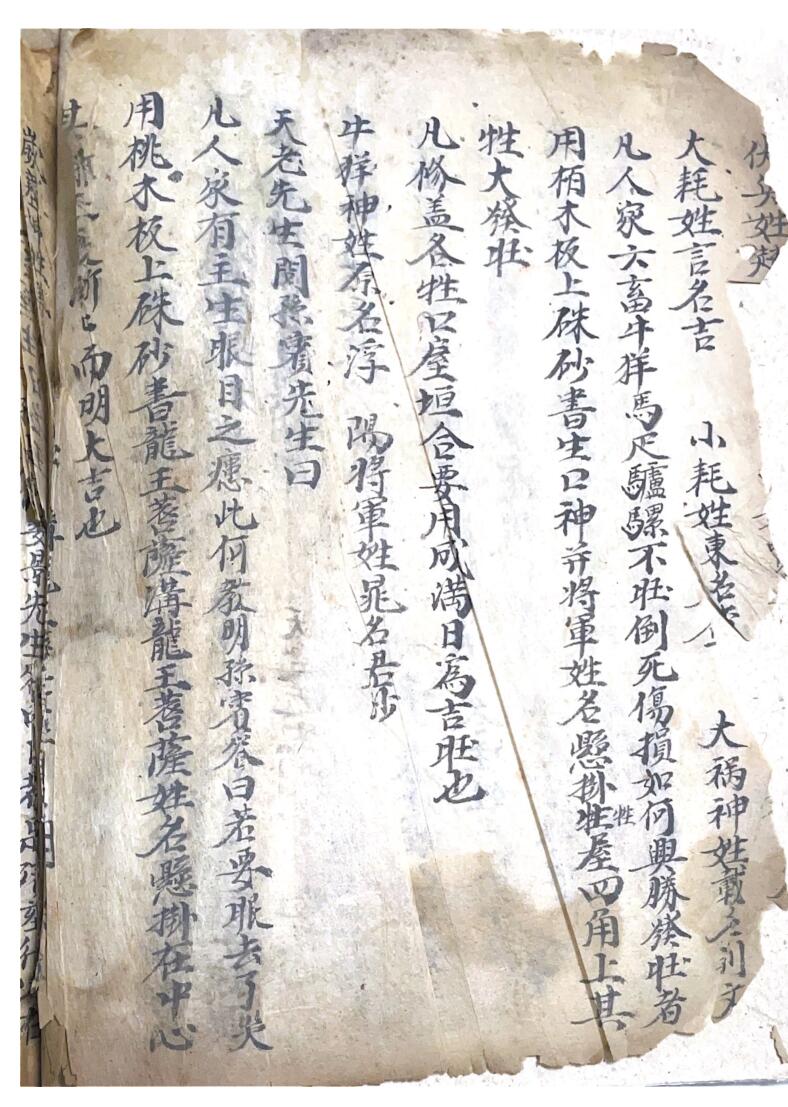 大耗姓言名吉 小耗姓東名 大禍神姓戴名刘文
凡人家六畜牛羊馬疋驢騾不旺倒死傷損如何興勝發旺者
用栢木板上硃砂書生口神并将軍姓名懸掛牲牲屋四角上其
牲大發旺
凡修盖各牲口屋垣合要用成满日為吉旺也
牛羊神姓原名浮 陽將軍姓晁名君
天老先生問孫賓先生曰
凡人家有主生眼目之瘜此何教明孫賓答曰若要眼去了失
用桃木板上硃砂書龍王菩薩溝龍王菩薩姓名懸掛在中心
而明大吉也